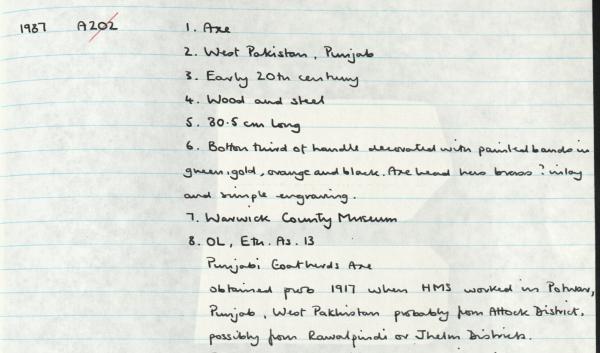 1937 A202 1. Axe
2. West Pakistan, Punjab
3. Early 20th century
4. Wood and steel
5. 80.5 cm long
6. Bottom third of handle decorated with painted bands in
green, gold, orange and black. Axe head has brass ? inlay
and simple engraving.
7. Warwick County Museum
8. OL, Eth. As. 13
Punjabi Goatherds Axe
obtained prob 1917 when HMS worked in Potwar,
Punjab, West Pakhistan probably from Attock District,
possibly from Rawalpindi or Jhelm Districts.